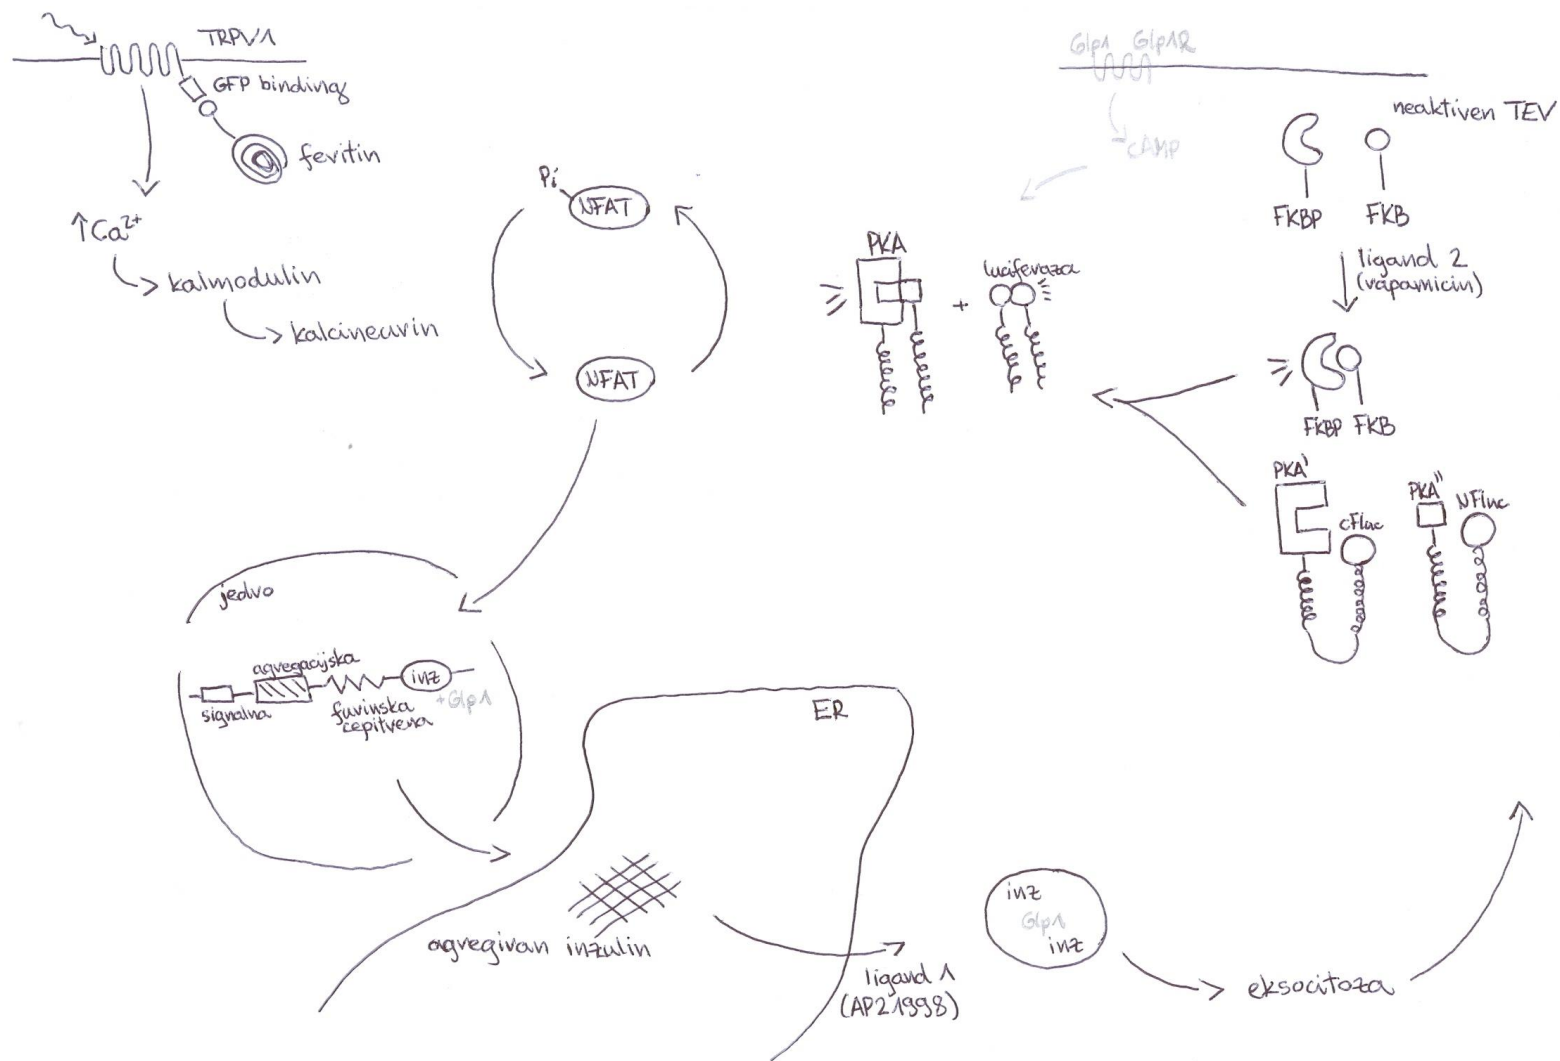 TRPV1
GFP binding
feritin
↑Ca2+
kalmodulin
kalcineurin
Pi
NFAT
NFAT
Glp1 Glp1R
cAMP
neaktiven TEV
FKBP FKB
ligand 2
(rapamicin)
PKA
+
luciferaza
FKBP FKB
PKA'
cFluc
PKA''
NFluc
jedro
agregacijska
signalna
furinska
cepitvena
inz
+Glp1
ER
agregiran inzulin
ligand 1
(AP21998)
inz
Glp1
inz
eksocitoza